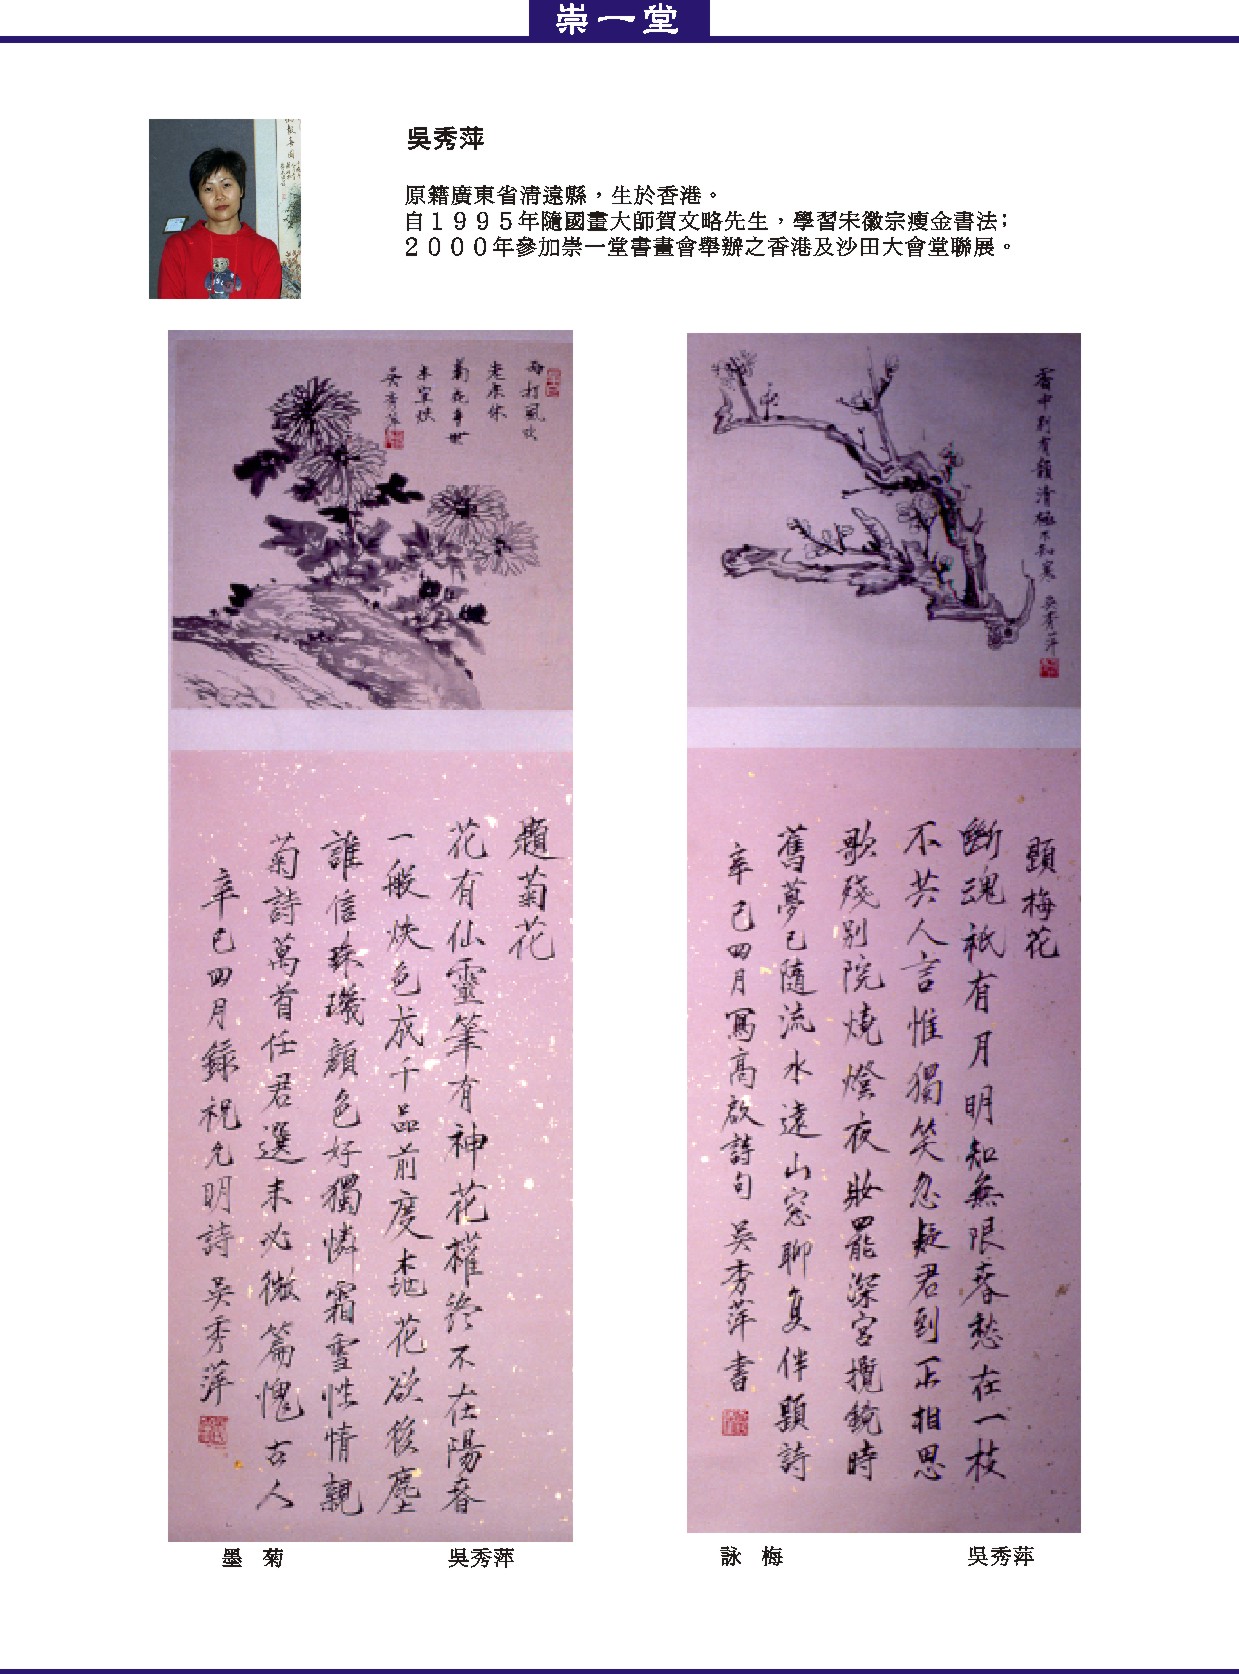 崇一堂
吳秀萍
原籍廣東省清遠縣，生於香港。
自１９９５年隨國畫大師賀文略先生，學習宋徽宗瘦金書法；
２０００年參加崇一堂書畫會舉辦之香港及沙田大會堂聯展。
雨打風吹
老未休
菊花身世
未寂
吳秀萍
雪中別有韻清極不知寒 吳秀萍
題菊花
花有仙靈筆有神花權終不在陽春
一般快色成千品前度桃花欲後塵
誰信珠璣顏色好獨憐霜雪性情親
菊詩萬首任君選未必微篇愧古人
辛巳四月錄祝允明詩 吳秀萍
題梅花
斷魂祇有月明知無限春愁在一枝
不共人言惟獨笑忽疑君到正相思
歌殘別院燒燈夜妝罷深宮攬鏡時
舊夢已隨流水遠山窓聊复伴題詩
辛巳四月寫高啟詩句 吳秀萍書
墨 菊
吳秀萍
詠 梅
吳秀萍